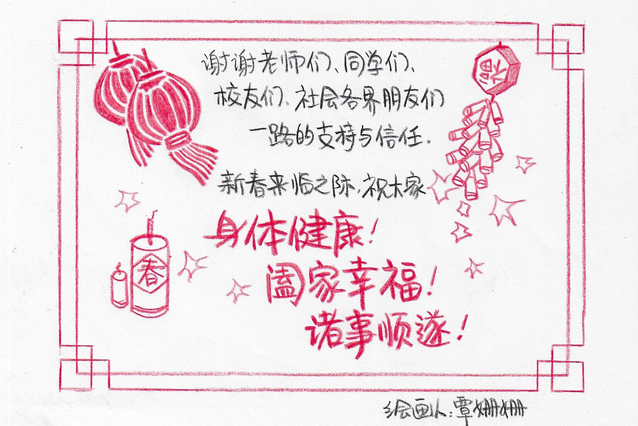 谢谢老师们、同学们、
校友们、社会各界朋友们
一路的支持与信任.
新春来临之际,祝大家
身体健康!
阖家幸福!
诸事顺遂!
福
春
绘画人:覃姗姗